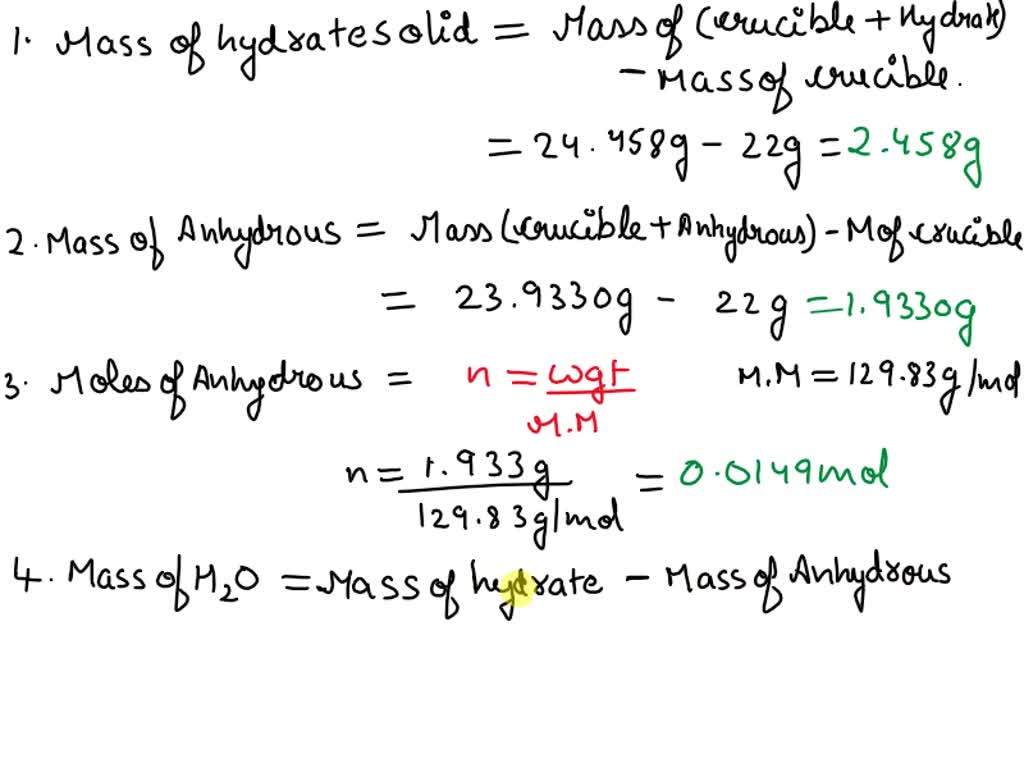 1. Mass of hydrate solid = Mass of (crucible + Hydrat)
- Mass of crucible.
= 24.458g - 22g = 2.458g
2. Mass of Anhydrous = Mass (crucible + Anhydrous) - M of crucible
= 23.9330g - 22g = 1.9330g
3. Moles of Anhydrous = n = wgt / M.M M.M = 129.83g/mol
n = 1.933g / 129.83g/mol = 0.0149mol
4. Mass of H₂O = Mass of hydrate - Mass of Anhydrous